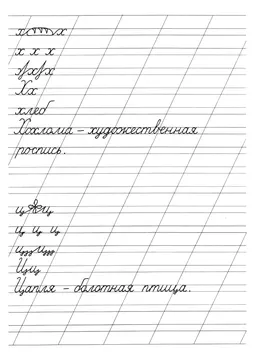 х х
х х х
х х
Хх
хлеб
Хохлома – художественная
роспись.
ц ц
ц ц ц
ц ц
Цц
Цапля – болотная птица.